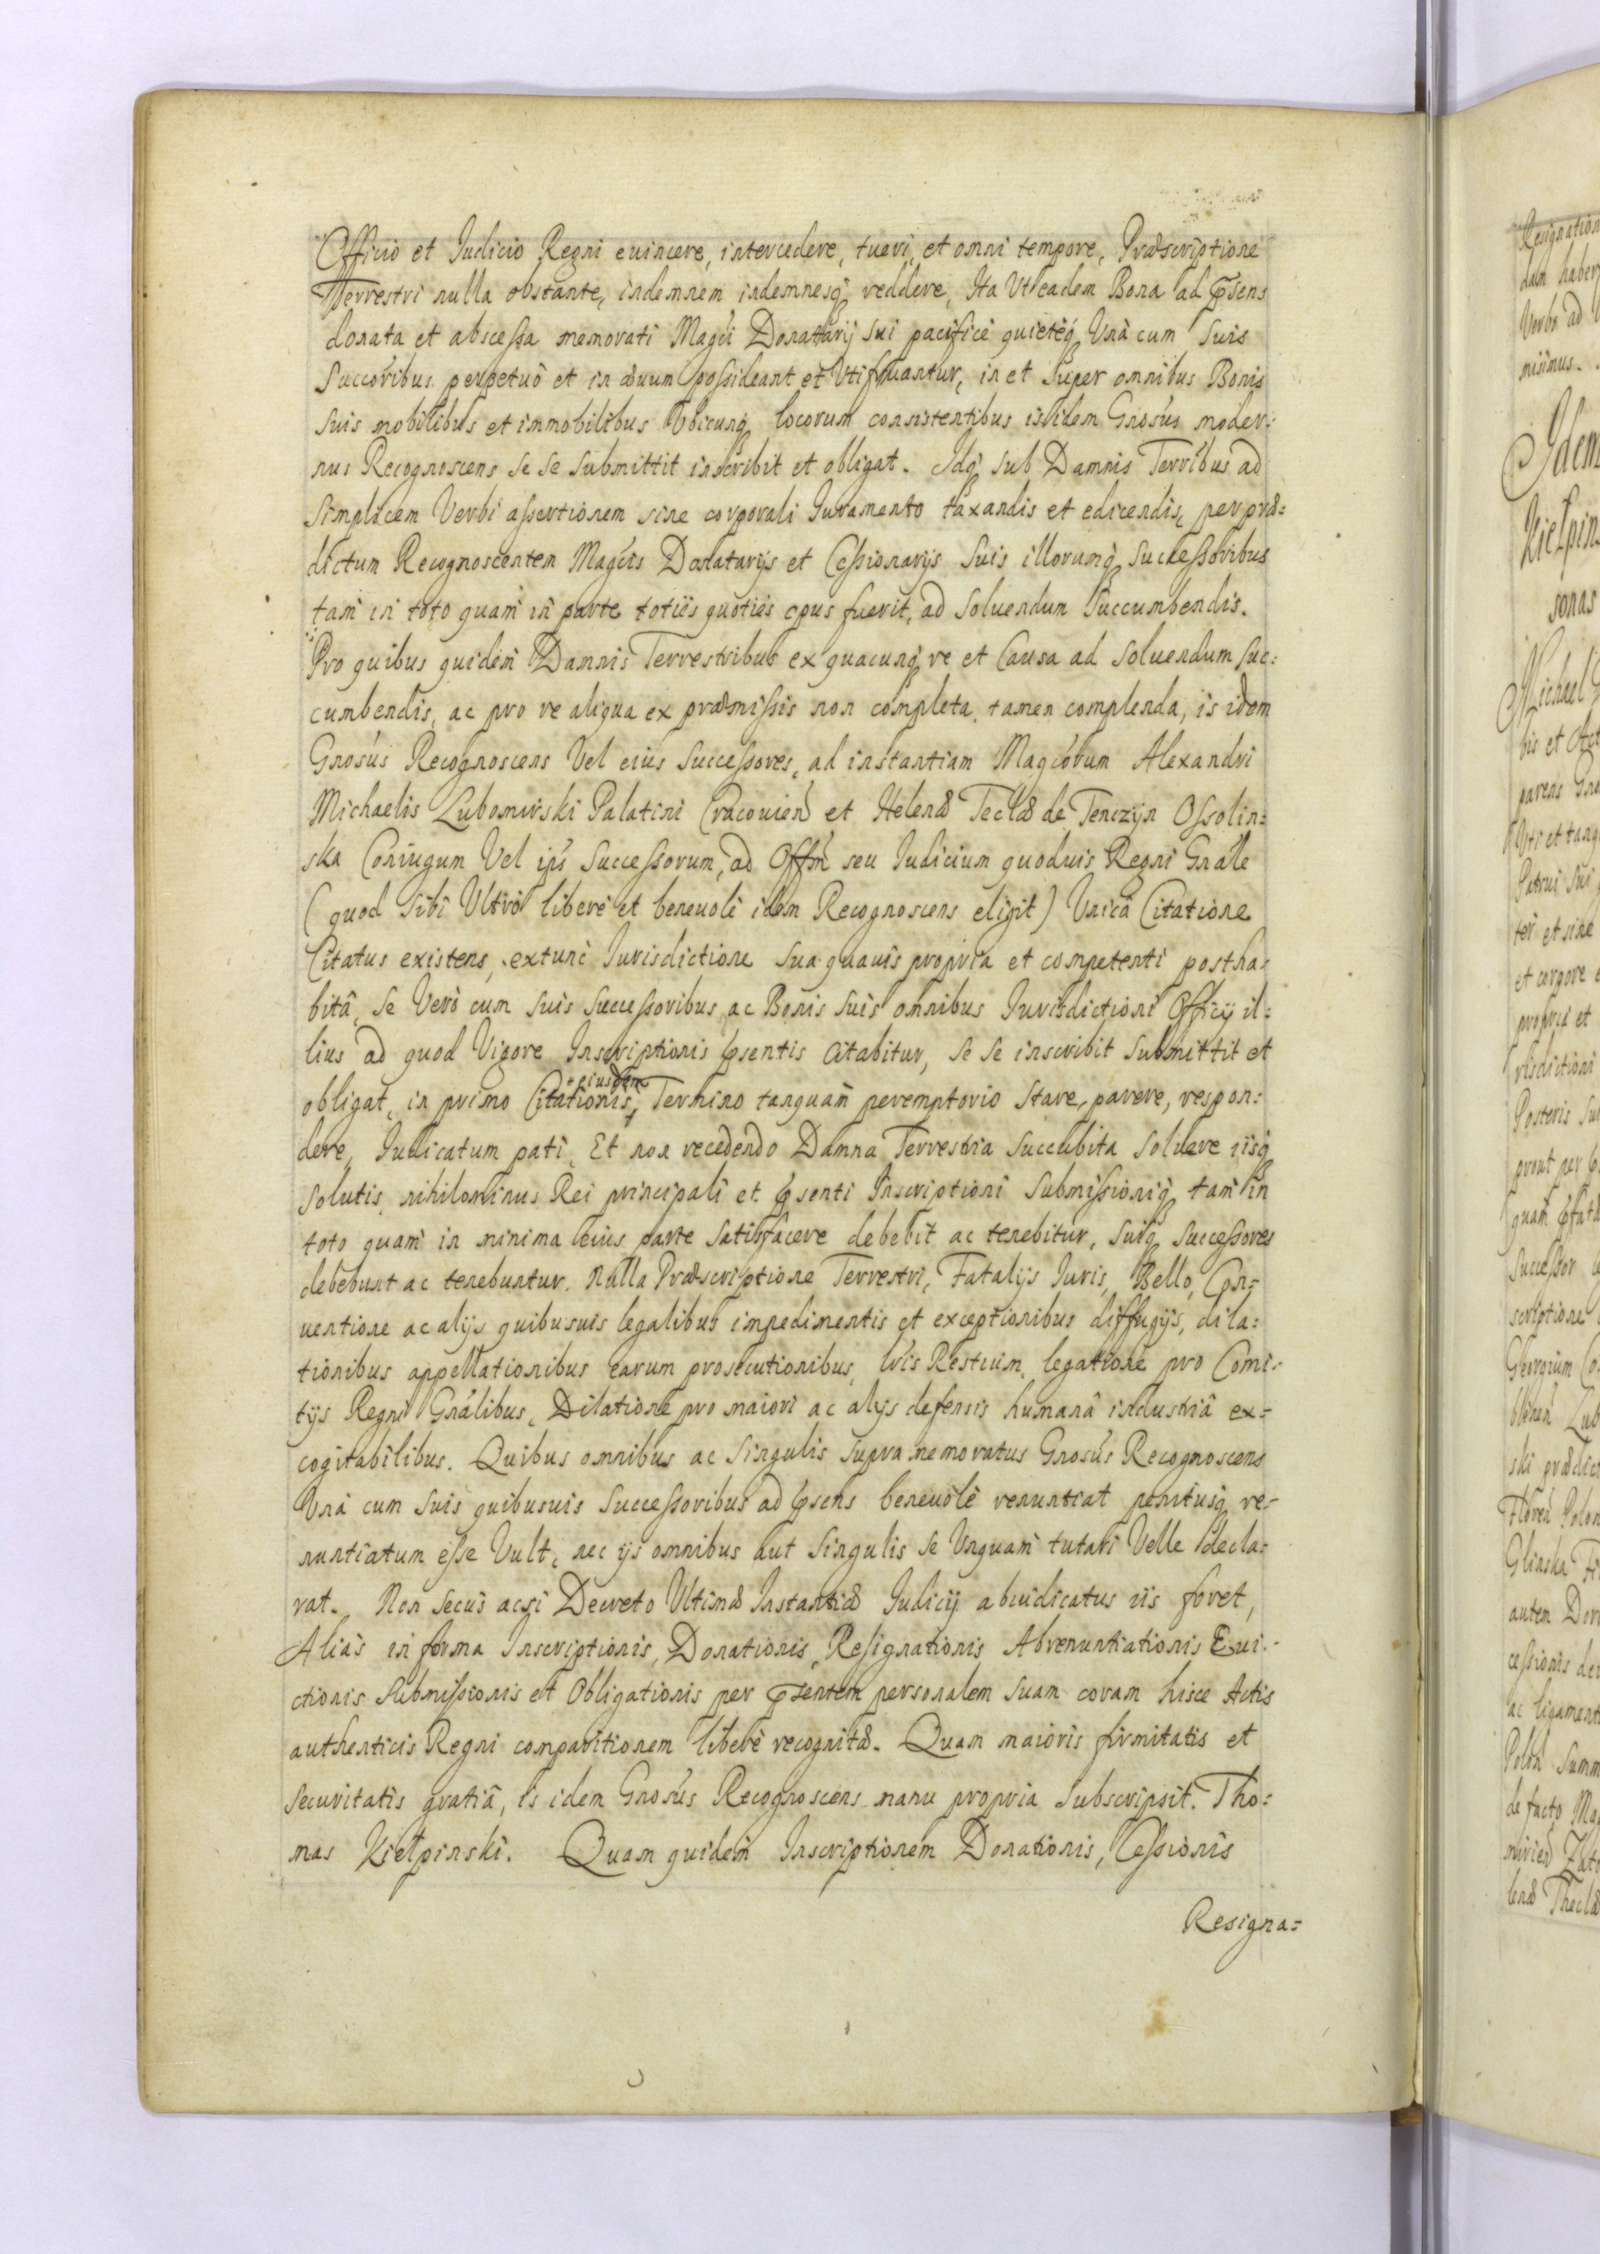 Officio et Judicio Regni euincere, intercedere, tueri, et omni tempore, Præscriptione
Terrestri nulla obstante, indemnem indemnesq́ reddere, Ita Vt eadem Bona ad p̃sens
donata et abscessa memorati Magći Donatarij sui pacificè quietéq́ Vnà cum Suis
Succoribus perpetuò et in æuum possideant et Vtifruantur, in et Super omnibus Bonis
Suis mobilibus et immobilibus Vbicunq́ locorum consistentibus isidem Gnosus moder:
nus Recognoscens se se submittit inscribit et obligat. Idq́ sub Damnis Terribus ad
simplicem Verbi assertionem sine corporali Iuramento taxandis et edicendis, per præ=
dictum Recognoscentem Magćis Donatarijs et Cessionarijs Suis illorumq́ Successoribus
tam in toto quam in parte toties quoties opus fuerit, ad Soluendum Succumbendis.
Pro quibus quidem Damnis Terrestribus ex quacunq́ re et Causa ad Soluendum Suc:
cumbendis, ac pro re aliqua ex præmissis non completa, tamen complenda, is idem
Gnosus Recognoscens Vel eius Successores, ad instantiam Magćorum Alexandri
Michaelis Lubomirski Palatini Cracouien̄ et Helenæ Teclæ de Tenczyn Ossolin:
ska Coniugum Vel ips̃ Successorum, ad Offm̃ seu Iudicium quoduis Regni Gnãle
(quod Sibi Vltrò liberè et beneuolè idem Recognoscens eligit) Vnicâ Citatione
Citatus existens, extunc Iurisdictione Sua quauis propria et competenti postha=
bitâ, se Verò cum suis Successoribus ac Bonis suis omnibus Iurisdictioni Officij il=
lius ad quod Vigore Inscriptionis p̃sentis Citabitur, se se inscribit submittit et
obligat, in primo Citationis eiusdem Termino tanquam peremptorio stare, parere, respon:
dere, Iudicatum pati, Et non recedendo Damna Terrestria Succubita Soluere iisq́
Solutis, nihilominus Rei principali et p̃senti Inscriptioni Submissioniq́ tam in
toto quam in minima eius parte Satisfacere debebit ac tenebitur, Suiq́ Successores
debebunt ac tenebuntur. Nulla Præscriptione Terrestri, Fatalijs Iuris, Bello, Con=
uentione ac alijs quibusuis legalibus impedimentis et exceptionibus diffugijs, dila:
tionibus appellationibus earum prosecutionibus, lris Restium, legatione pro Comi=
tijs Regni Gnãlibus, Dilatione pro maiori ac alijs defensis humanâ industriâ ex=
cogitabilibus. Quibus omnibus ac Singulis supra memoratus Gnosus Recognoscens
Vnà cum Suis quibusuis Successoribus ad p̃sens beneuolè renuntiat penitusq́ re=
nuntiatum esse Vult, nec ijs omnibus aut Singulis se Vnquam tutari Velle decla:
rat. Non Secus acsi Decreto Vltimæ Instantiæ Iudicij abiudicatus iis foret,
Alias in forma Inscriptionis, Donationis, Resignationis Abrenuntiationis Eui-
ctionis Submissionis et Obligationis per p̃sentem personalem Suam coram hisce Actis
authenticis Regni comparitionem liberè recognitæ. Quam maioris firmitatis et
Securitatis gratiâ, is idem Gnosus Recognoscens manu propria Subscripsit. Tho:
mas Kiełpinski. Quam quidem Inscriptionem Donationis, Cessionis
Resigna=